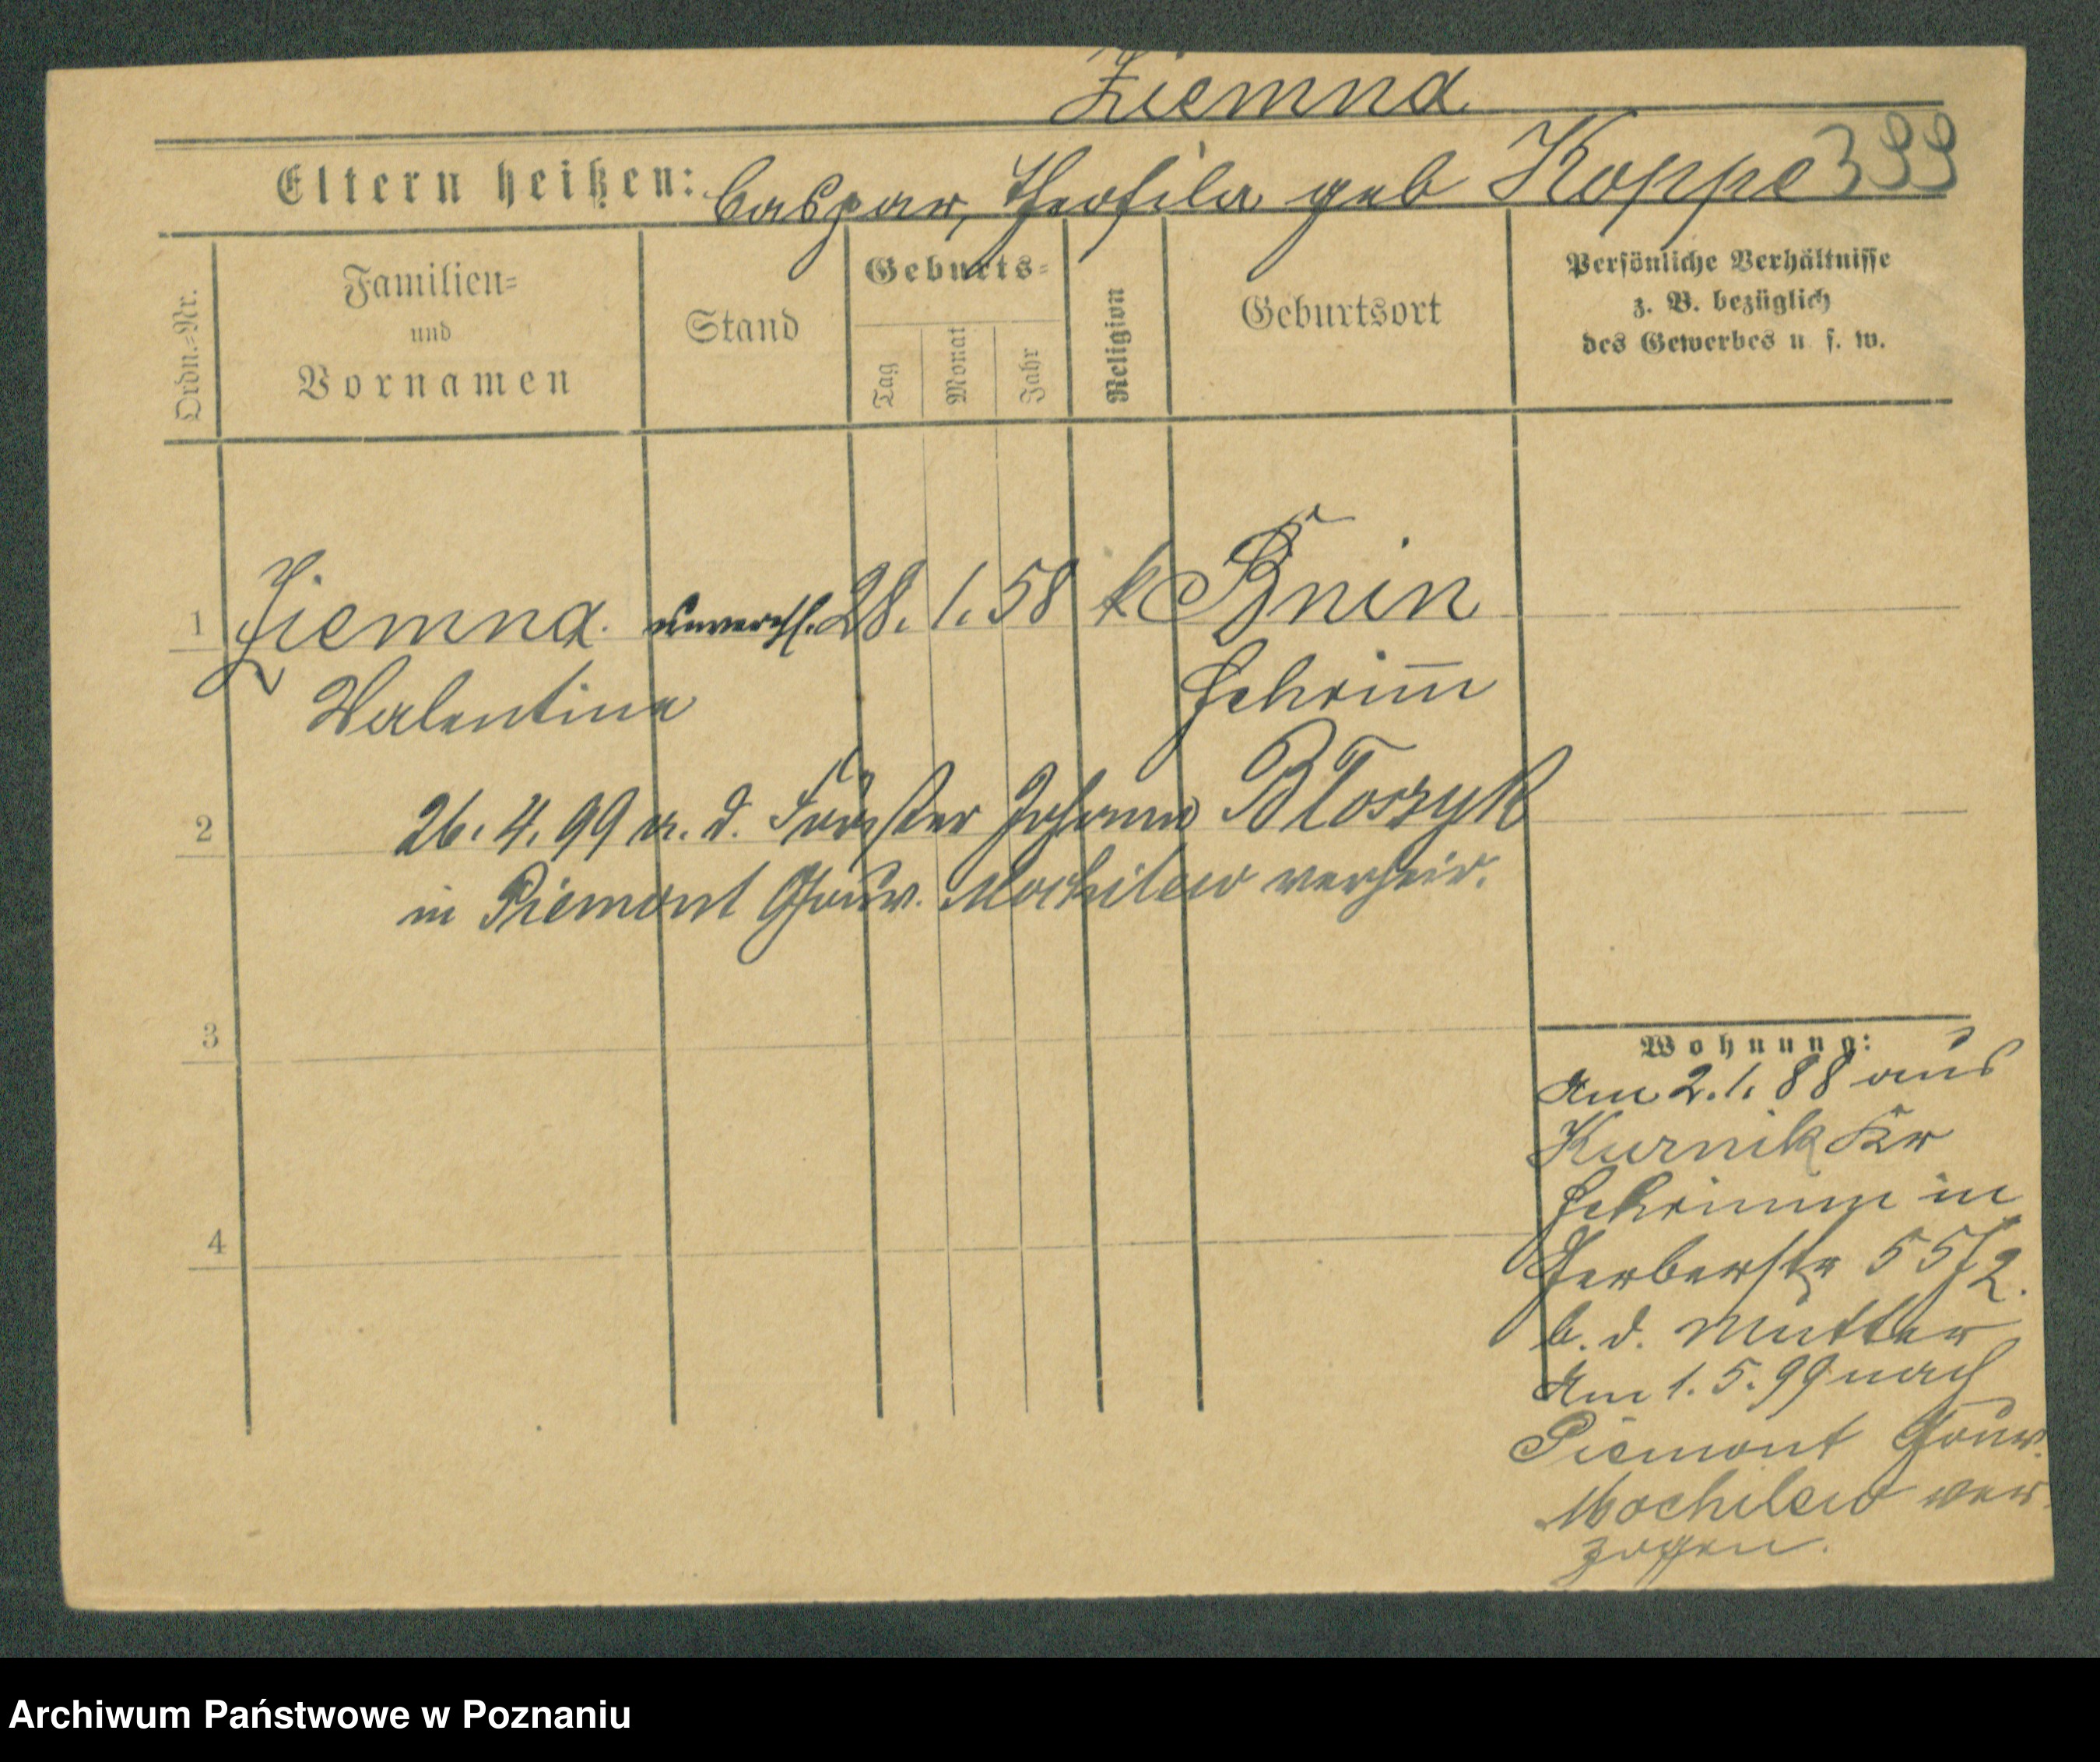 Ziemna
399
Eltern heißen: Caspar, Theofila geb Koppe
Ordn.=Nr.
Familien=
und
Vornamen
Stand
Geburts=
Tag
Monat
Jahr
Religion
Geburtsort
Persönliche Verhältnisse
z. B. bezüglich
des Gewerbes u. s. w.
1 Ziemna. unverehl. 28. 1. 58 k Bnin
Valentina Schrim̅
2 26. 4. 99 m. d. Förster Johann Bloszyk
in Piemont Gouv. Mochilew verheir.
3
4
Wohnung:
Am 2. 1. 88 aus
Kurnik Kr
Schrimm in
Gerberstr 55/2.
b. d. Mutter
Am 1. 5. 99 nach
Piemont Gouv.
Mochilew ver
zogen.
Archiwum Państwowe w Poznaniu